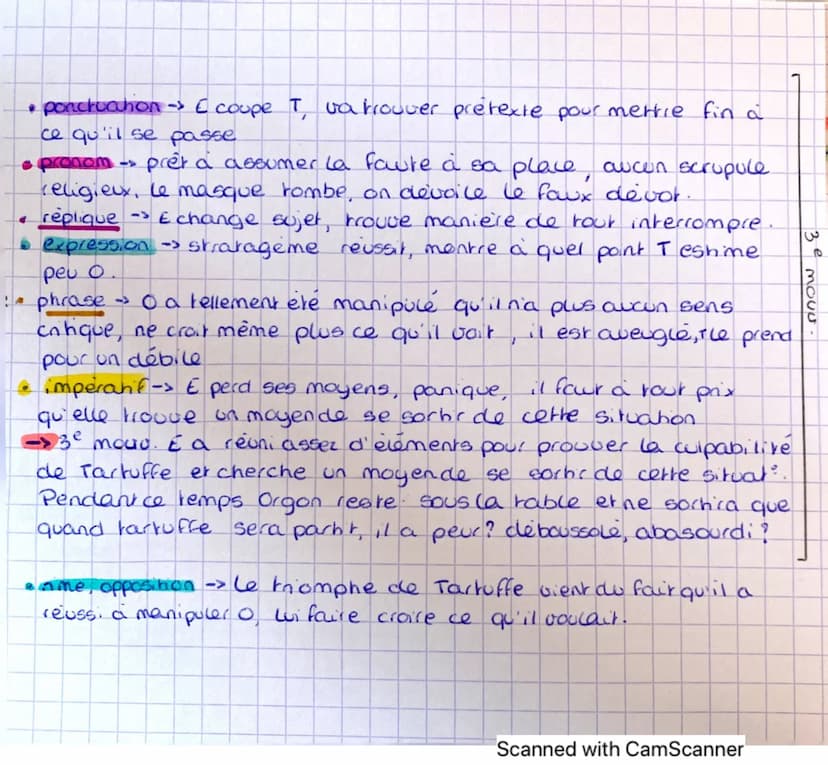 • ponctuation -> E coupe T, va trouver prétexte pour mettre fin à
ce qu'il se passe
• pronom -> prêt à assumer la faute à sa place, aucun scrupule
religieux, le masque tombe, on dévoile le faux dévot.
• réplique -> E change sujet, trouve manière de tout interrompre.
• expression -> stratagème réussit, montre à quel point T estime
peu O.
• phrase -> O a tellement été manipulé qu'il n'a plus aucun sens
critique, ne croit même plus ce qu'il voit, il est aveuglé, T le prend
pour un débile
• impératif -> E perd ses moyens, panique, il faut à tout prix
qu'elle trouve un moyen de se sortir de cette situation
-> 3e mouv. E a réuni assez d'éléments pour prouver la culpabilité
de Tartuffe et cherche un moyen de se sortir de cette situat°.
Pendant ce temps Orgon reste sous la table et ne sortira que
quand tartuffe sera partit, il a peur? déboussolé, abasourdi?
3e mouv.
• rime, opposition -> Le triomphe de Tartuffe vient du fait qu'il a
réussi à manipuler O, lui faire croire ce qu'il voulait.
Scanned with CamScanner